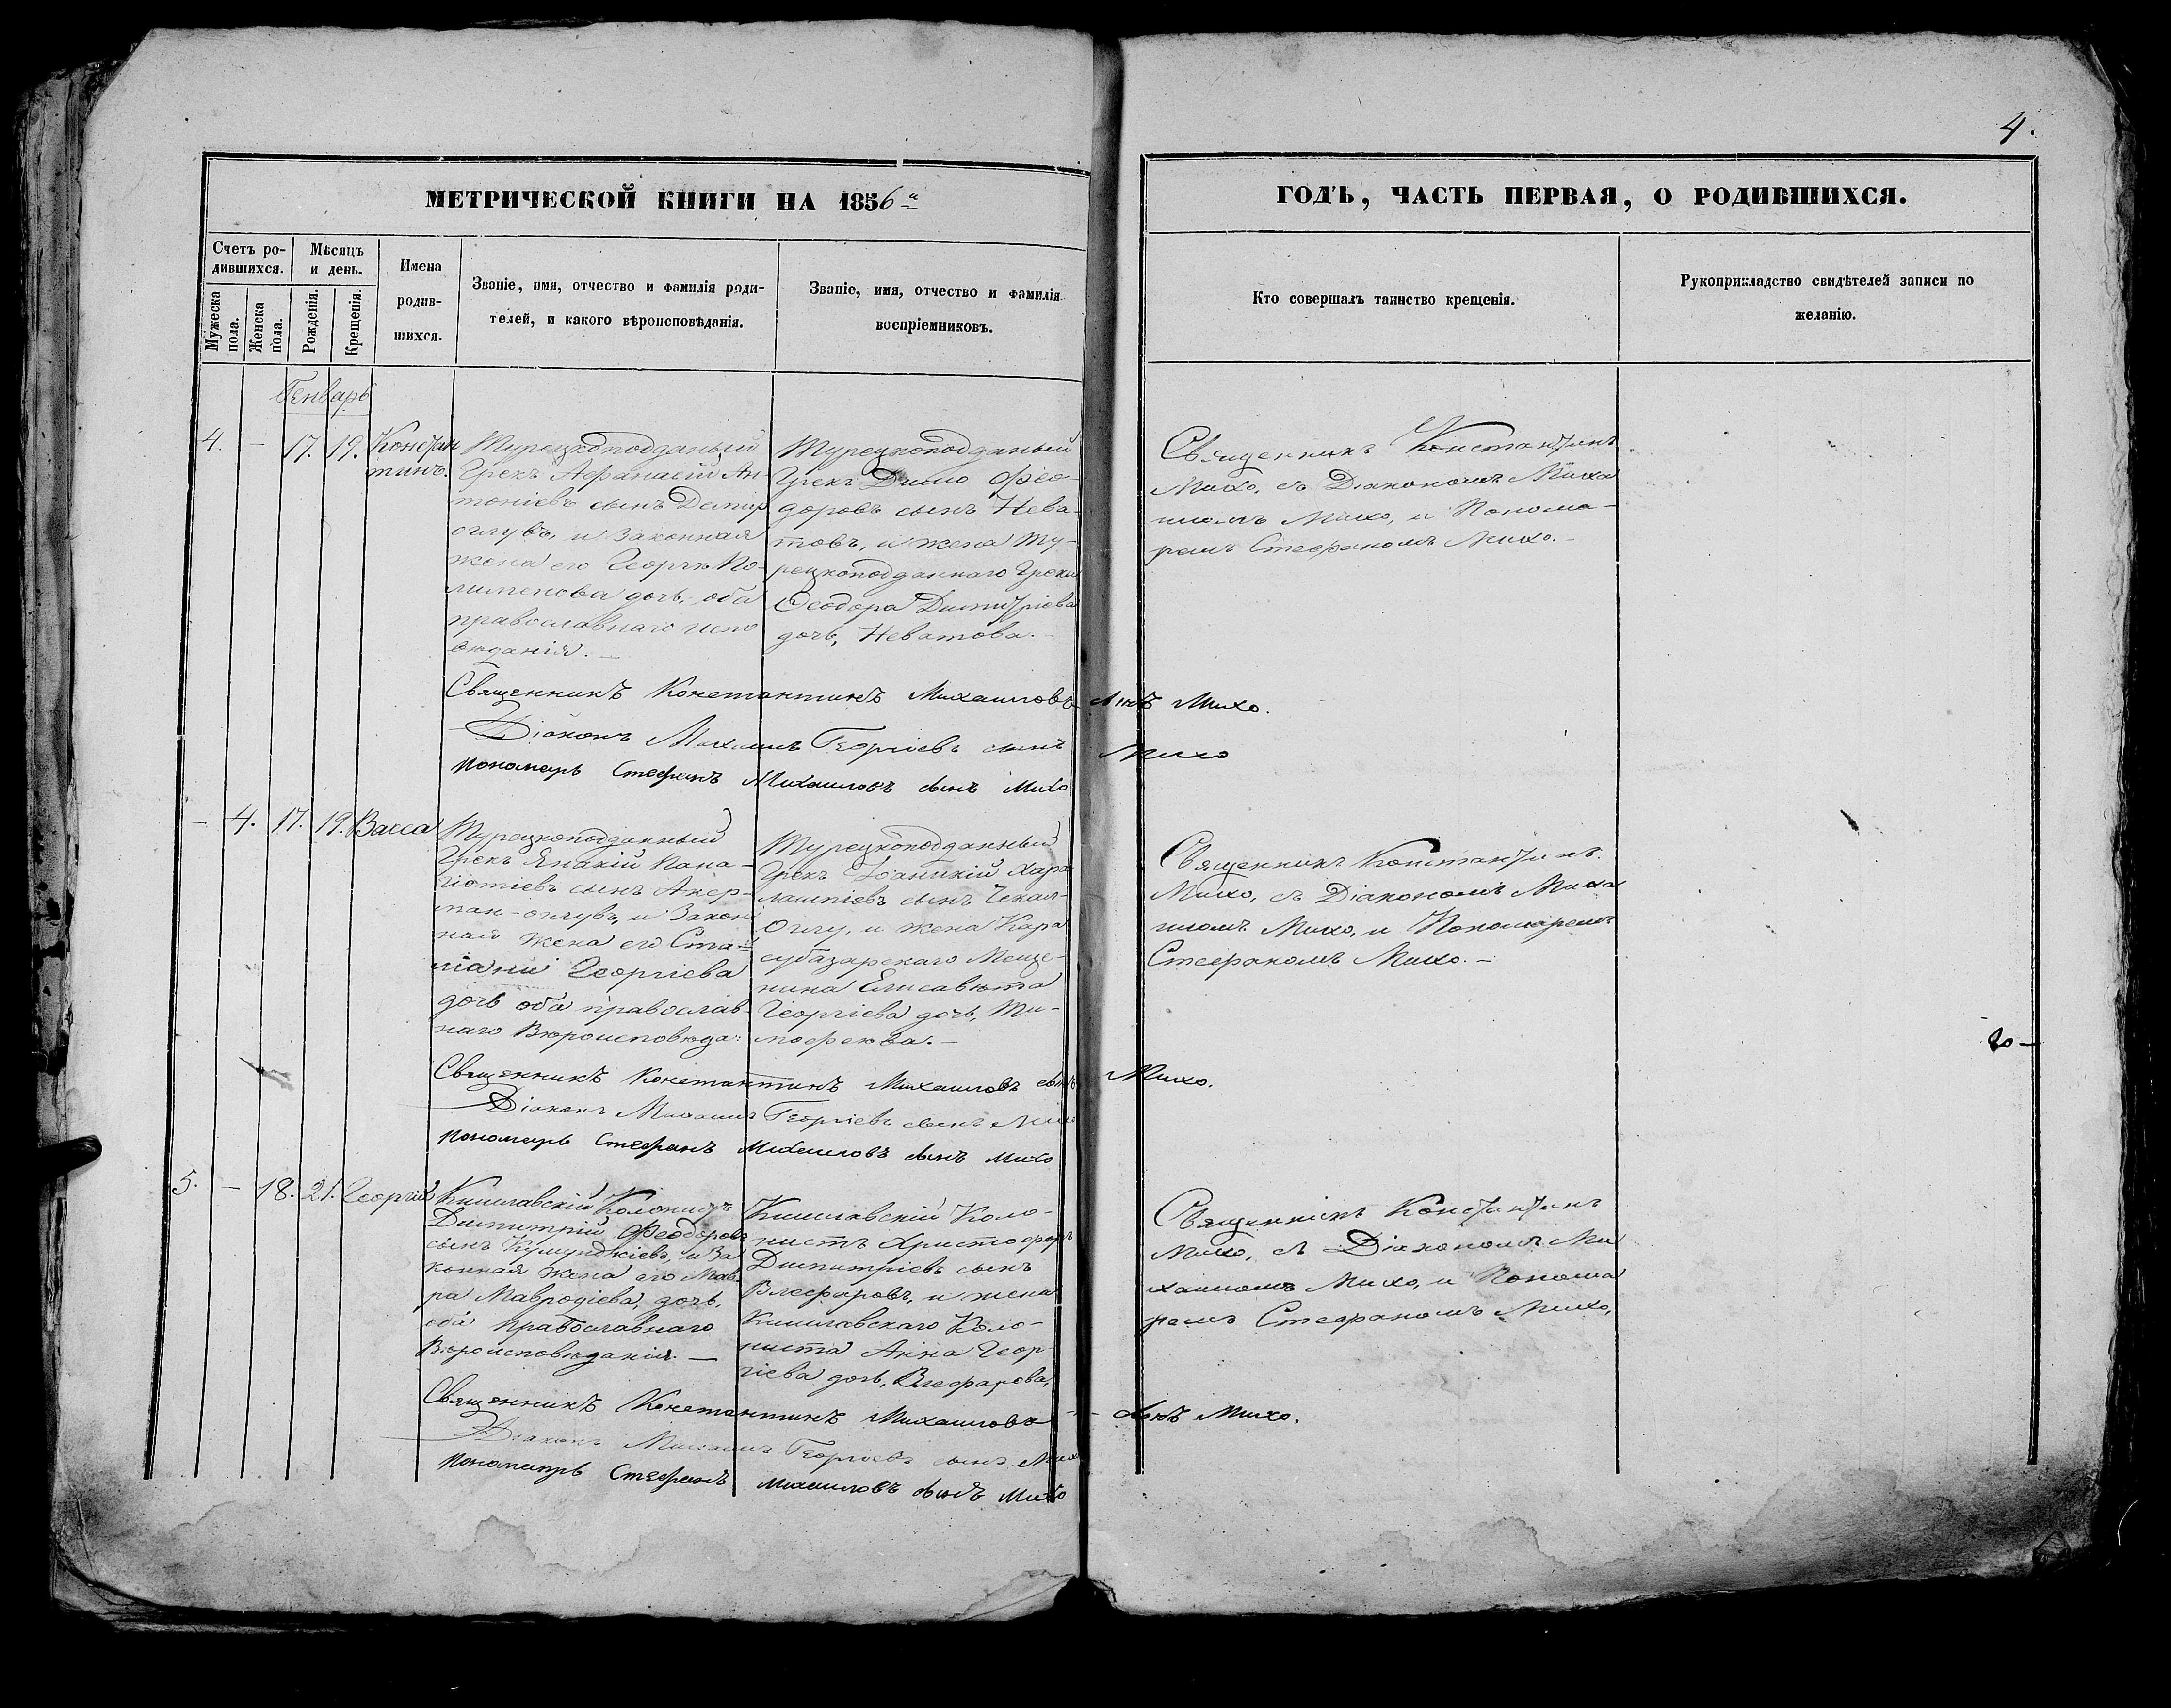 4.
МЕТРИЧЕСКОЙ КНИГИ НА 1856й
ГОДЪ, ЧАСТЬ ПЕРВАЯ, О РОДИВШИХСЯ.
Счетъ ро-
дившихся.
Мѣсяцъ
и день.
Мужеска
пола.
Женска
пола.
Рожденія.
Крещенія.
Имена
родив-
шихся.
Званіе, имя, отчество и фамилія роди-
телей, и какого вѣроисповѣданія.
Званіе, имя, отчество и фамилія
воспріемниковъ.
Кто совершалъ таинство крещенія.
Рукоприкладство свидѣтелей записи по
желанію.
Генварь
4. - 17. 19. Констан
тинъ.
Турецкоподданый
Грекъ Афанасій Ан-
тоніевъ сынъ Демир
оглувъ, и Законная
жена его Георгія По-
дочь, оба
православнаго испо
вѣданія. -
Турецкоподданый
Грекъ Димо Фео-
доровъ сынъ Нева-
товъ, и жена Ту-
рецкоподданнаго Грека
Ѳеодора Димитріева
дочь, Неватова. -
Священникъ Константинъ
Михо, съ Діакономъ Миха
иломъ Михо, и Понома-
ремъ Стефаномъ Михо. -
Священникъ Константинъ Михаиловъ сынъ Михо.
Діаконъ Михаилъ Георгіевъ сынъ Михо
Пономарь Стефанъ Михаиловъ сынъ Михо
- 4. 17. 19. Васса
Турецкоподданный
Грекъ Янакій Пана-
гіотіевъ сынъ Акер-
ман-оглувъ, и Закон
ная жена его Ста-
Георгіева
дочь оба православ-
наго Вѣроисповѣда:
Турецкоподданный
Грекъ Іоаникій Хара
лампіевъ сынъ Чекал-
Оглу, и жена Кара
субазарскаго Меща-
нина Елисавѣта
Георгіева дочь, Ти-
мофеева. -
Священникъ Константинъ
Михо, съ Діакономъ Миха
иломъ Михо, и Пономаремъ
Стефаномъ Михо. -
Священникъ Константинъ Михаиловъ сынъ Михо.
Діаконъ Михаилъ Георгіевъ сынъ Михо
Пономарь Стефанъ Михаиловъ сынъ Михо
5. - 18. 21. Георгій
Кишлавскій Колонистъ
Димитрій Феодоровъ
сынъ Кумунджіевъ, и За
конная жена его Мав
ра Мавродіева, дочь,
оба Православнаго
Вѣроисповѣданія. -
Кишлавскій Коло-
нистъ Христофоръ
Димитріевъ сынъ
Влефаровъ, и жена
Кишлавскаго Коло-
ниста Анна Геор-
гіева дочь, Влефарова,
Священникъ Константинъ
Михо, съ Діакономъ Ми
хаиломъ Михо, и Понома
ремъ Стефаномъ Михо,
Священникъ Константинъ Михаиловъ сынъ Михо.
Діаконъ Михаилъ Георгіевъ сынъ Михо
Пономарь Стефанъ Михаиловъ сынъ Михо